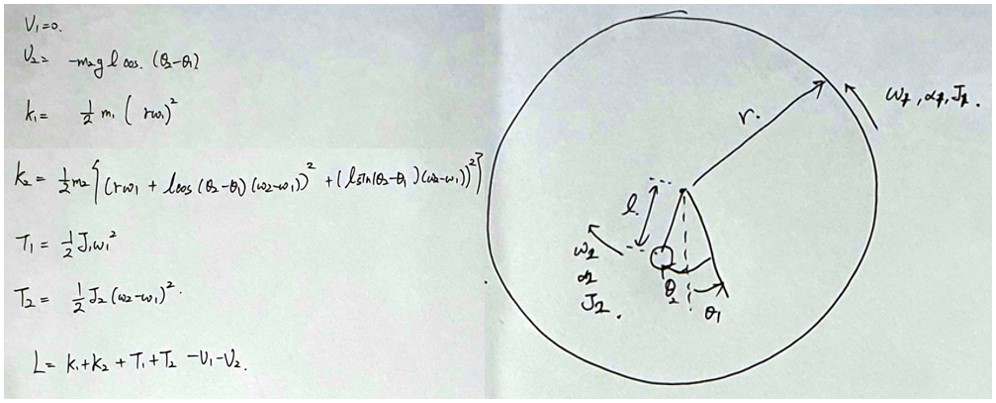 V₁=0.
V₂= -m₂gl cos. (θ₂-θ₁)
k₁= 1/2 m₁ ( rω₁)²
k₂ = 1/2 m₂{(rω₁ + lcos (θ₂-θ₁)(ω₂-ω₁))² +(lsin(θ₂-θ₁)(ω₂-ω₁))²}
T₁ = 1/2 J₁ω₁²
T₂ = 1/2 J₂ (ω₂-ω₁)².
L= k₁+k₂ + T₁+T₂ -V₁-V₂.
r.
l.
θ₂
θ₁